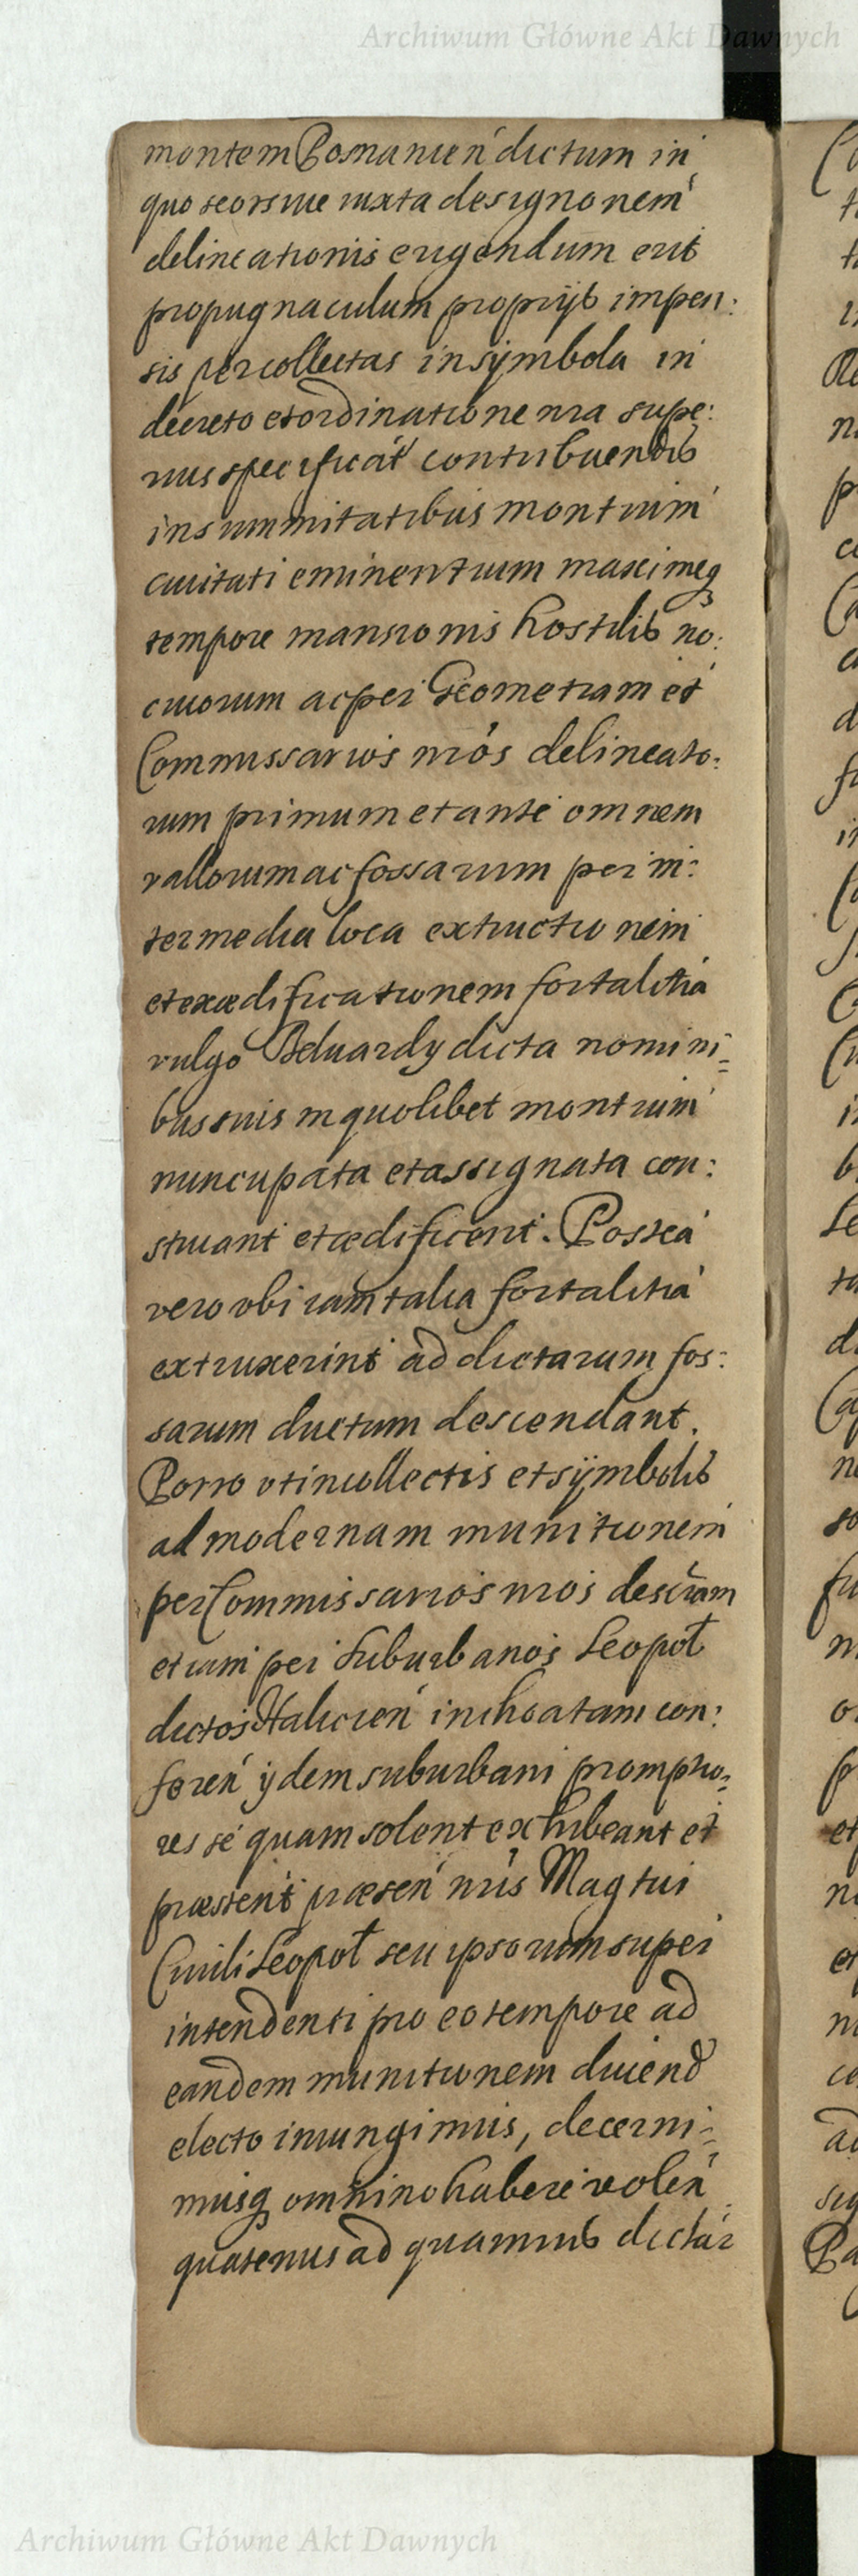 Archiwum Główne Akt Dawnych
montem Posnanien dictum in
quo seorsiue iuxta designonem
delineationis erigendum erit
propugnaculum proprijs impen:
sis per collectas in symbola in
decreto et ordinatione nra supe:
rius specificat contribuendis
in summitatibus montium
ciuitati eminentium maximeq
tempore mansionis hostilis no:
ciuorum ac per Geometram et
Commissarios nros delineato:
rum primum et ante omnem
vallorum ac fossarum per in:
termedia loca extructionem
et exædificationem fortalitia
vulgo Beluardy dicta nomini=
bus suis in quolibet montium
nuncupata et assignata con:
struant et ædificent. Postea
vero vbi iam talia fortalitia
extruxerint ad dictarum fos:
sarum ductum descendant.
Porro vt in collectis et symbolis
ad modernam munitionem
per Commissarios nros descram
etiam per suburbanos Leopol
dictos Halicien inchoatam con:
feren ijdem suburbani promptio=
res se quam solent exhibeant et
præstent præsen nris Mag tui
Ciuili Leopol seu ipsorum super
intendenti pro eo tempore ad
eandem munitionem duiend
electo iniungimus, decerni=
musq omnino habere volen
quatenus ad quamuis dictar
Archiwum Główne Akt Dawnych